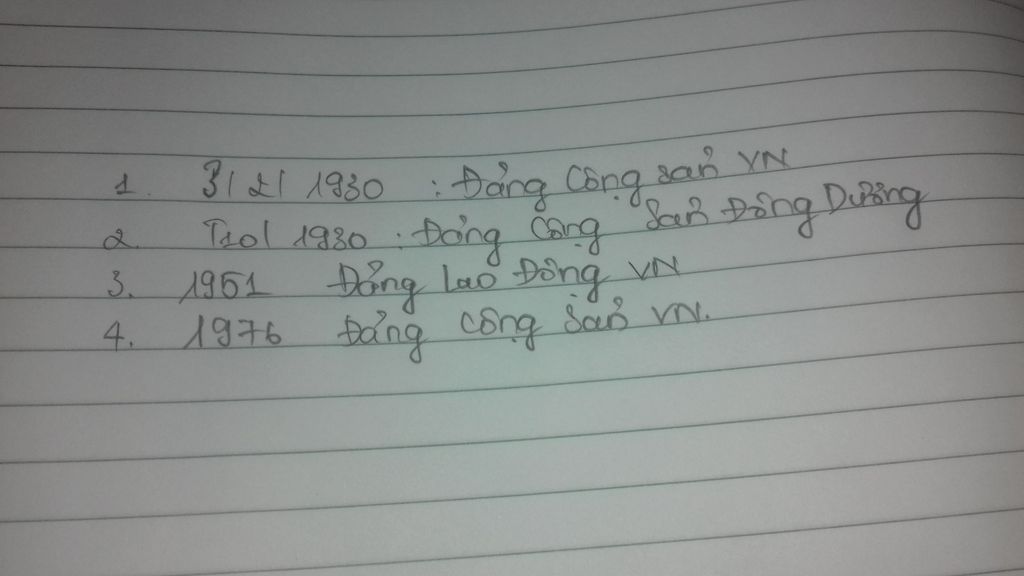 1. 3/2/1930 : Đảng Cộng sản VN
2. T10/1930 : Đảng Cộng sản Đông Dương
3. 1951 Đảng lao Động VN
4. 1976 Đảng Cộng sản VN.